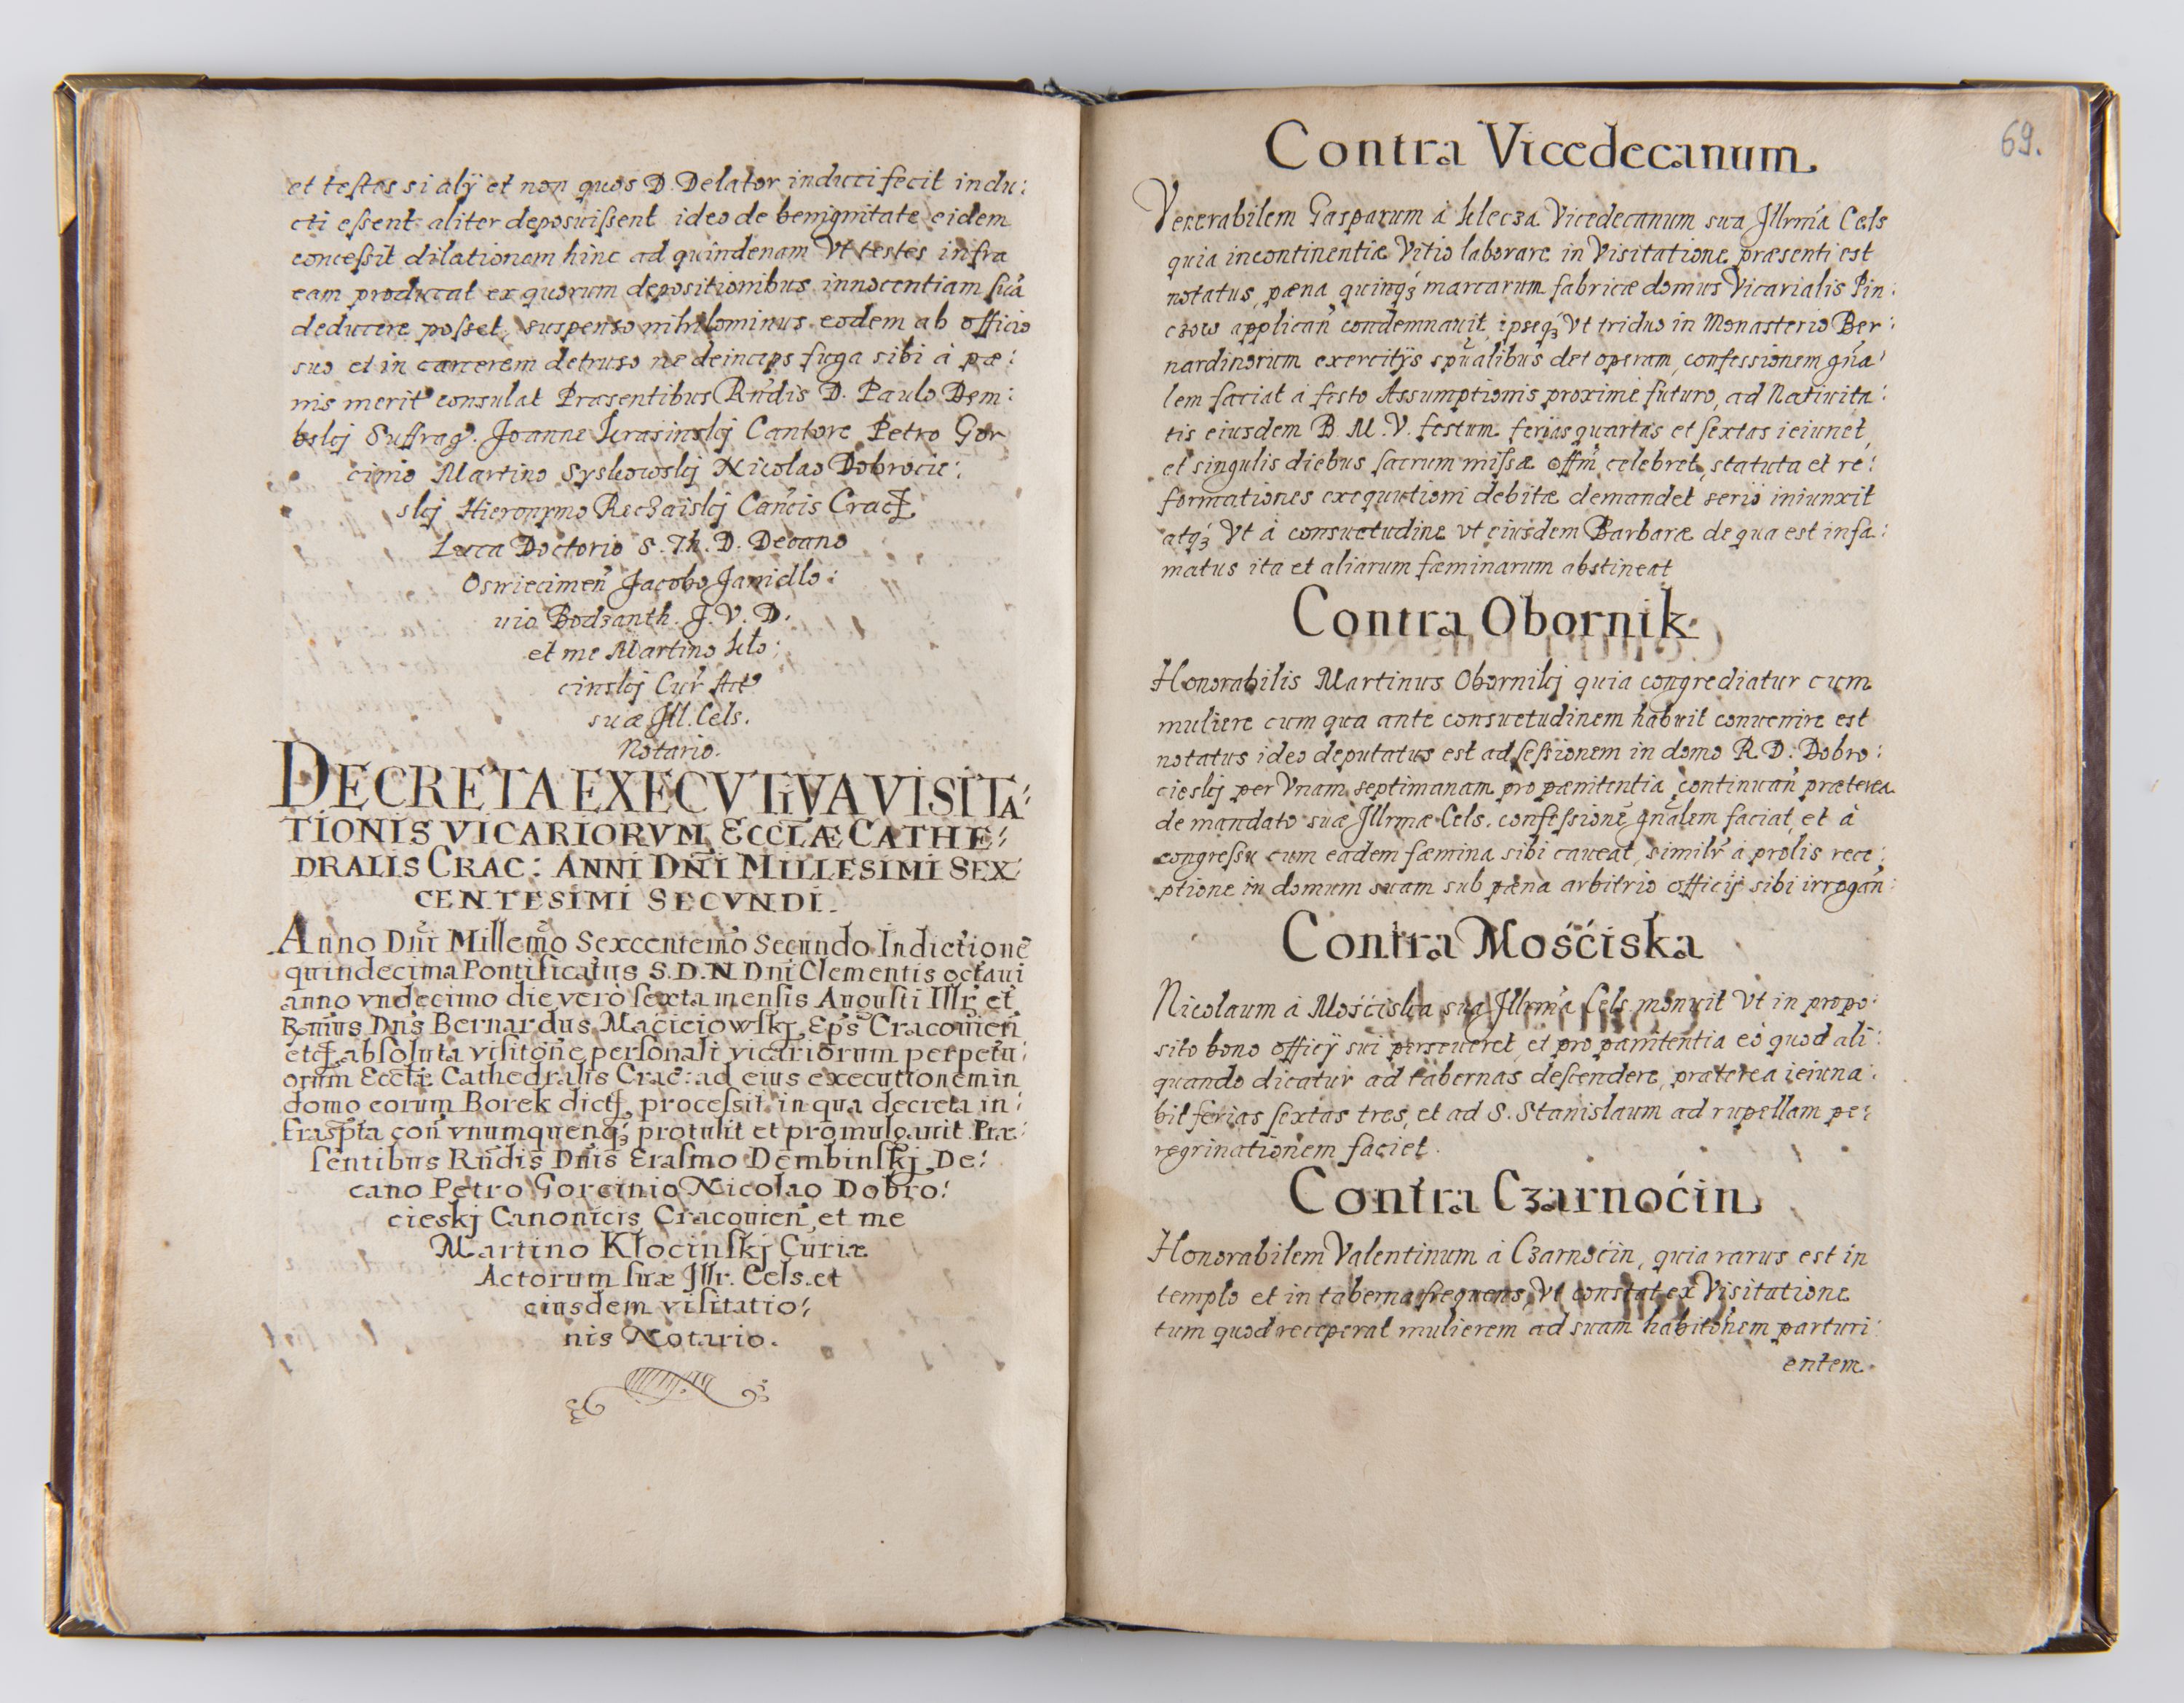 et testes si alÿ et non quos D. Delator induci fecit indu:
cti essent aliter deposuissent ideo de benignitate eidem
concessit dilationem hinc ad quindenam Vt testes infra
eam producat ex quorum depositionibus innocentiam suã
deducere posset, suspenso nihilominus eodem ab officio
suo et in carcerem detruso ne deinceps fuga sibi à pæ:
nis merit⁹ consulat Præsentibus Rñdis D. Paulo Dem:
bskj Suffrag. Joanne Krasinskj Cantore Petro Gor
cinio Martino Syskowskj Nicolao Dobrocie:
skj Hieronymo Reczaiskj Cañcis Crac
Luca Doctorio S. Th. D. Decano
Oswiecimeñ Jacobo Janidlo:
uio Bodzanth. J. V. D.
et me Martino Kło:
cinskj Cur Act⁹
suæ Jll. Cels.
Notario.
DECRETA EXECVTIVA VISITA:
TIONIS VICARIORVM ECCLÆ CATHE:
DRALIS CRAC: ANNI DÑI MILLESIMI SEX
CENTESIMI SECVNDI.
Anno Dñi Millemo Sexcentemo Secundo Indictione
quindecima Pontificatus S.D.N Dni Clementis octaui
anno vndecimo die verò sexta mensis Augusti Illr̃ et
Rmus Dns Bernardus Maciciowskj Eps Cracouieñ
etc absoluta visitone personali vicariorum perpetu:
orum Eccłæ Cathedralis Crac: ad eius executionem in
domo eorum Borek dict processit in qua decreta in:
fraspta coñ vnumquenq₃ protulit et promulgauit Præ:
sentibus Rñdis Dñis Erasmo Dembinskj De:
cano Petro Gorcinio Nicolao Dobro:
cieskj Canonicis Cracouieñ et me
Martino Kłocinskj Curiæ
Actorum suæ Jllr. Cels. et
eiusdem visitatio:
nis Notario.
69.
Contra Vicedecanum
Venerabilem Gasparum à Klecza Vicedecanum sua Jllrma Cels
quia incontinentiæ Vitio laborare in Visitatione præsenti est
notatus, pæna quinq₃ marcarum fabricæ domus Vicarialis Pin:
czow applicañ condemnauit, ipseq₃ Vt triduo in Monasterio Ber:
nardinorum exercitÿs spualibus det operam, confessionem gña:
lem faciat à festo Assumptionis proximè futuro, ad Natiuita:
tis eiusdem B. M. V. festum ferias quartas et sextas ieiunet,
et singulis diebus sacrum missæ offm celebret, statuta et re:
formationes exequutioni debitæ demandet seriò iniunxit
atq₃ Vt à consuetudine vt eiusdem Barbaræ de qua est infa:
matus ita et aliarum fæminarum abstineat
Contra Obornik
Honorabilis Martinus Obornikj quia congrediatur cum
muliere cum qua ante consuetudinem habuit conuenire est
notatus ideo deputatus est ad sessionem in domo R.D. Dobro:
cieskj per Vnam septimanam pro pænitentia continuañ præterea
de mandato suæ Jllrmæ Cels. confessionẽ gñalem faciat, et à
congressu cum eadem fæmina sibi caueat, similr̃ à prolis rece:
ptione in domum suam sub pæna arbitrio officij sibi irrogañ:
Contra Mośćiska
Nicolaum à Mośćiska sua Jllrma Cels monuit Vt in propo:
sito bono officÿ sui perseueret, et pro pænitentia eò quod ali:
quando dicatur ad tabernas descendere, præterea ieiuna:
bit ferias sextas tres, et ad S. Stanislaum ad rupellam pe:
regrinationem faciet.
Contra Czarnoćin
Honorabilem Valentinum à Czarnoćin, quia rarus est in
templo et in taberna frequens, Vt constat ex Visitatione
tum quod receperat mulierem ad suam habitonem parturi:
entem